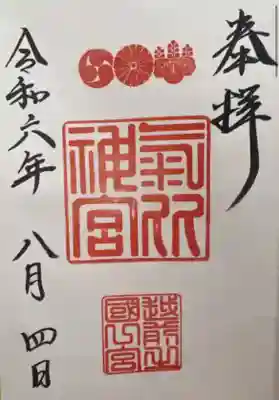 奉拝
氣比
神宮
越前之
國一宮
令和六年
八月四日